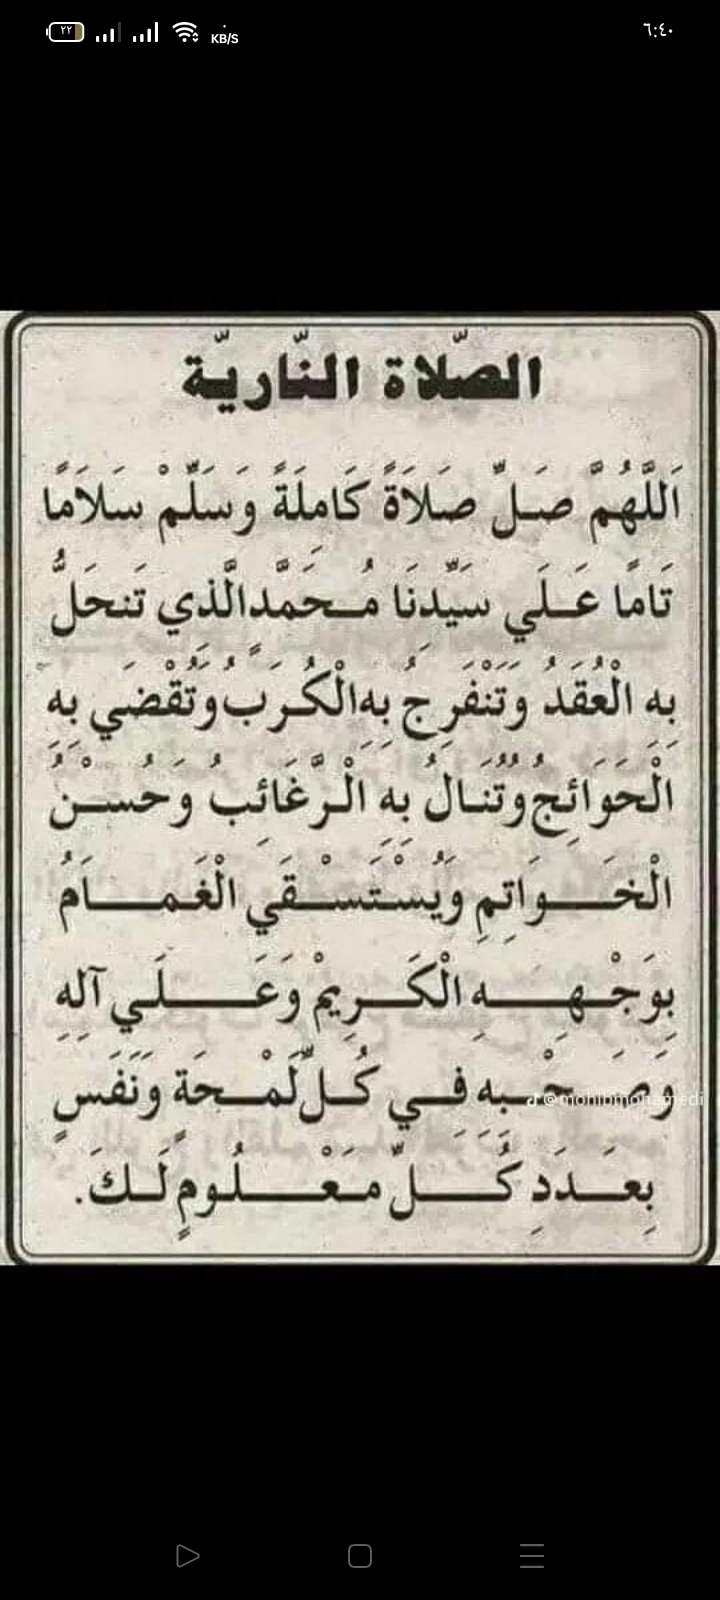 ٢٢
KB/S
٦:٤٠
الصّلاة النّاريّة
اَللَّهُمَّ صَلِّ صَلاَةً كَامِلَةً وَسَلِّمْ سَلاَمًا
تَامًا عَلَي سَيِّدِنَا مُحَمَّدٍ الَّذِي تَنحَلُّ
بِهِ الْعُقَدُ وَتَنْفَرِجُ بِهِ الْكُرَبُ وَتُقْضَي بِهِ
الْحَوَائِجُ وَتُنَالُ بِهِ الْرَّغَائِبُ وَحُسْنُ
الْخَوَاتِمِ وَيُسْتَسْقَي الْغَمَامُ
بِوَجْهِهِ الْكَرِيمْ وَعَلَي آلِهِ
وَصَحْبِهِ فِي كُلِّ لَمْحَةٍ وَنَفَسٍ
@mohibmohamedi
بِعَدَدِ كُلِّ مَعْلُومٍ لَكَ.